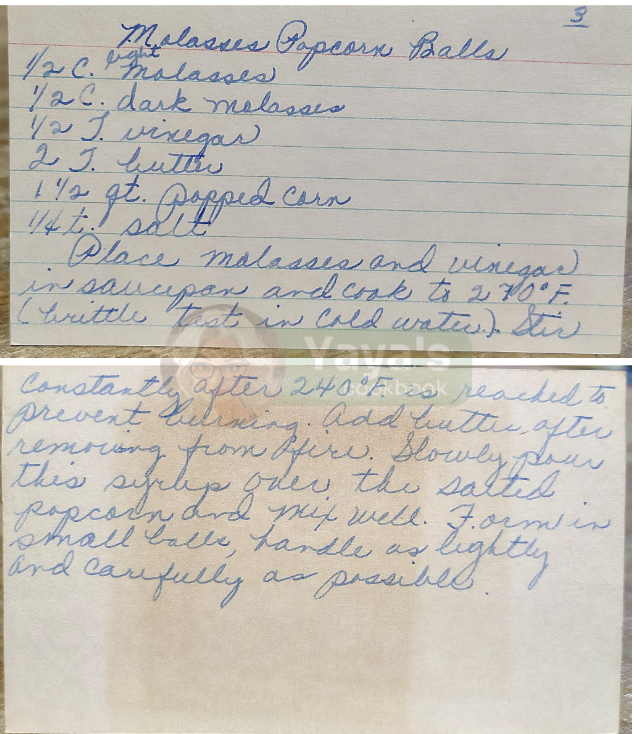 3
Molasses Popcorn Balls
1/2 C. light molasses
1/2 C. dark molasses
1/2 T. vinegar
2 T. butter
1 1/2 qt. popped corn
1/4 t. salt
Place molasses and vinegar
in saucepan and cook to 270°F.
(brittle test in cold water). Stir
Yaya's
Cookbook
constantly after 240°F. is reached to
prevent burning. Add butter after
removing from fire. Slowly pour
this syrup over the salted
popcorn and mix well. Form in
small balls, handle as lightly
and carefully as possible.